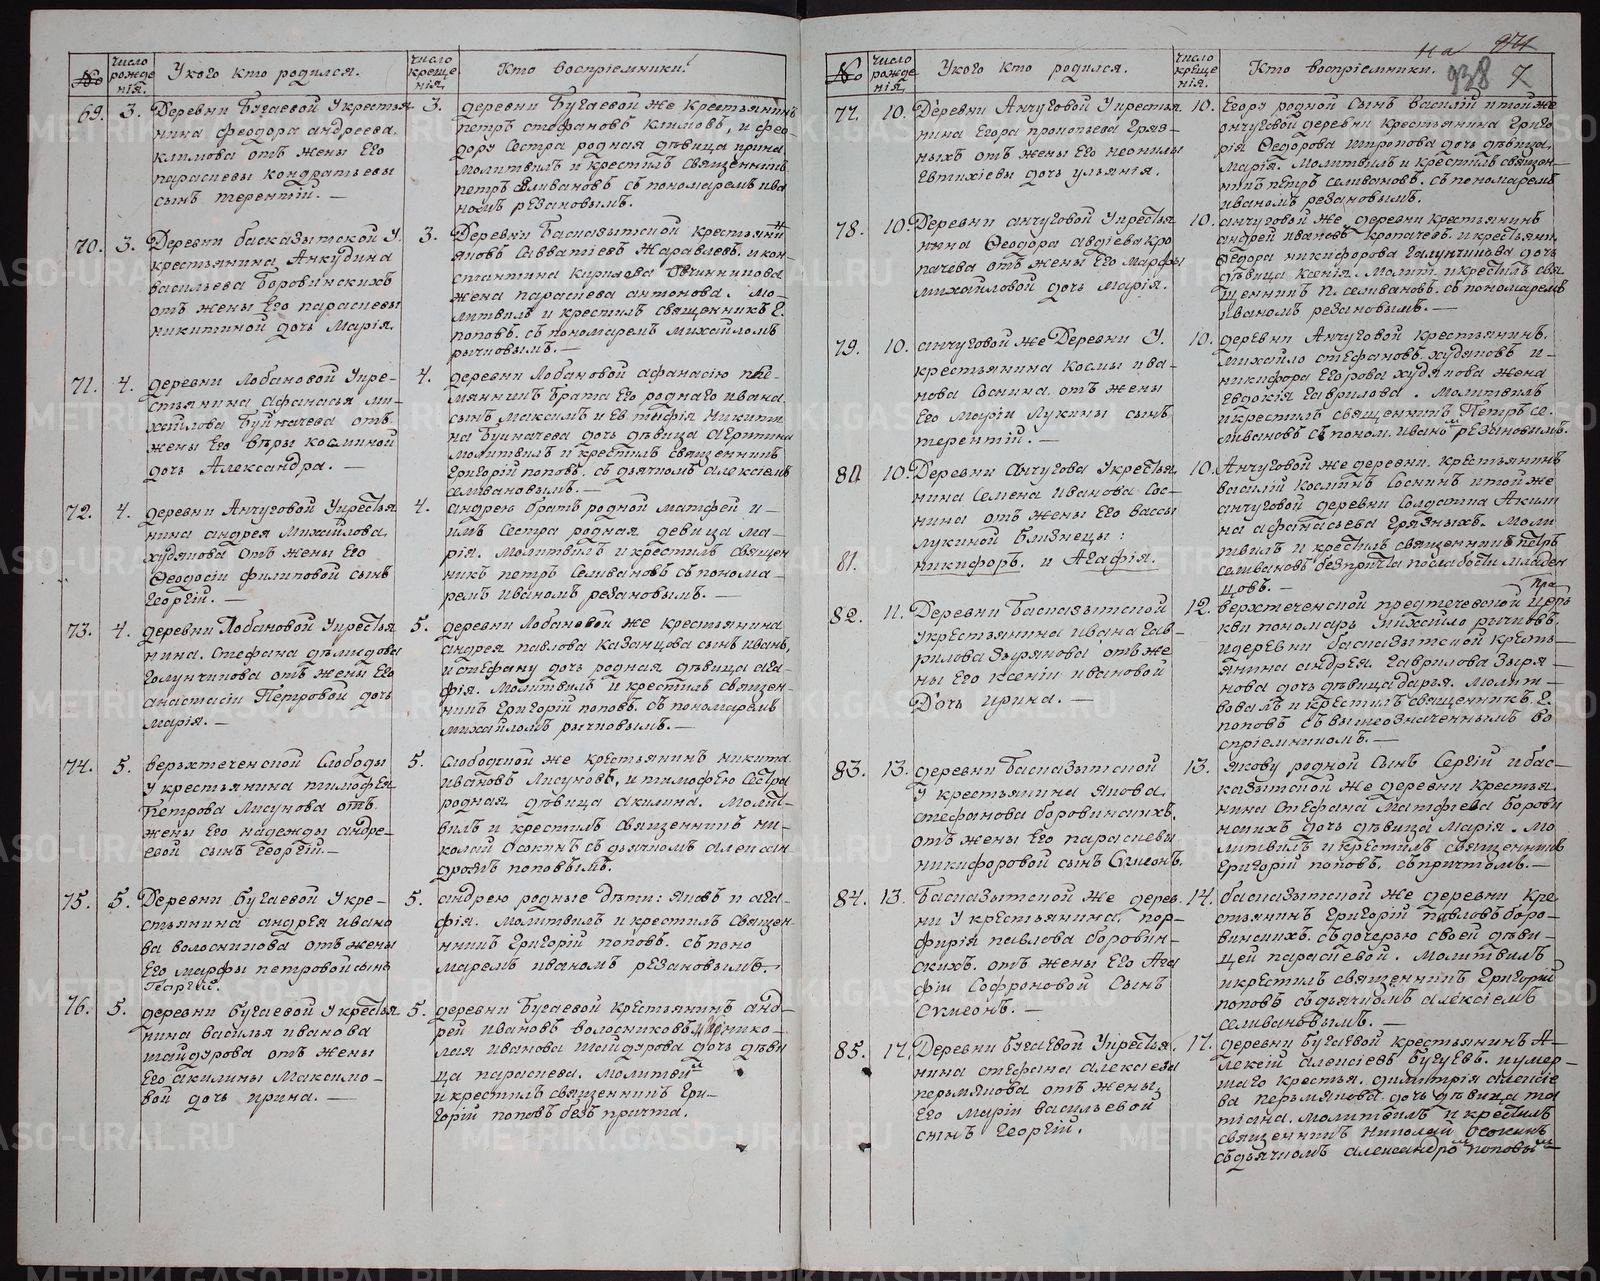 №
число рожденія.
У кого кто родился.
число крещенія.
Кто воспріемники.
69. 3. Деревни Бугаевой у крестья-
нина феодора андреева
климова отъ жены Его
параскевы кондратьевы
сынъ терентій. —
3. деревни Бугаевой же крестьянинъ
петръ стефановъ климовъ, и фео-
дору сестра родная дѣвица ирина
молитвилъ и крестилъ священникъ
петръ селивановъ съ пономаремъ ива
номъ рѣзановымъ.
70. 3. Деревни баска
крестьянина
васильева Боровинскихъ
отъ жены Его параскевы
никитиной дочь Марія.
3. Деревни крестьянинъ
Савватіевъ Жаравлевъ. и кон-
стантина Овчинникова
жена параскева антонова. мо-
литвилъ и крестилъ священникъ Г.
поповъ. съ пономаремъ михаиломъ
рычковымъ. —
71. 4. деревни Лобановой у кре-
стьянина афанасья ми-
хаилова Буйначева отъ
жены Его вѣры косминой
дочь Александра. —
4. деревни Лобановой афанасію пле-
мянникъ брата Его роднаго ивана
сынъ Максимъ и никити
на Буйначева дочь дѣвица
молитвилъ и крестилъ священникъ
Григорій поповъ. съ дьячкомъ алексіемъ
селивановымъ. —
72. 4. деревни Анчуговой у крестья
нина андрея михайлова
худякова отъ жены Его
Феодосіи филиповой сынъ
Георгій. —
4. андрею братъ родной матфей и —
имъ сестра родная девица ма-
рія. молитвилъ и крестилъ священ
никъ петръ Селивановъ съ понома-
ремъ иваномъ резановымъ. —
73. 4. деревни Лобановой у крестья
нина. стефана дѣмидова
голунчикова отъ жены Его
анастасіи Петровой дочь
марія. —
5. деревни Лобановой же крестьянина
андрея павлова Казанцова сынъ иванъ,
и стефану дочь родная дѣвица ага-
фія. молитвилъ и крестилъ священ-
никъ Григорій поповъ. съ пономаремъ
михаиломъ рычковымъ. —
74. 5. верьхтеченской слободы
у крестьянина тимофея
Петрова Лисунова отъ
жены Его надежды андре-
евой сынъ Георгій. —
5. слободской же крестьянинъ никита
ивановъ Лисуновъ, и тимофею сестра
родная дѣвица акилина. молит-
вилъ и крестилъ священникъ ни-
колай Осокинъ съ дьячкомъ алексан
дромъ поповымъ.
75. 5. Деревни бугаевой у кре-
стьянина андрея ивано
ва волосникова отъ жены
Его марфы петровой сынъ
Георгій.
5. андрею родные дѣти: яковъ и ага-
фія. молитвилъ и крестилъ священ-
никъ Григорій поповъ. съ поно
маремъ иваномъ резановымъ. —
76. 5. деревни бугаевой у крестья
нина василья иванова
шайдурова отъ жены
Его акилины Максимо-
вой дочь ирина. —
5. деревни Бугаевой крестьянинъ анд-
рей ивановъ волосниковъ, и нико-
лая иванова шайдурова дочь дѣви
ца параскева. молитвил
и крестилъ священникъ Гри-
горій поповъ безъ причта.
на 974
938 7
№
число рожденія.
У кого кто родился.
число крещенія.
Кто воспріемники.
77. 10. Деревни Анчуговой у крестья
нина Егора прокопьева Гряз-
ныхъ отъ жены Его неонилы
Евтихіевы дочь ульянія.
10. Егору родной сынъ василій и той же
анчуговой деревни крестьянина Григо
рія Феодорова широкова дочь дѣвица
марія. молитвилъ и крестилъ священ-
никъ петръ селивановъ. съ пономаремъ
иваномъ резановымъ.
78. 10. Деревни анчуговой у крестья
нина Феодора авдіева кро
пачева отъ жены Его марфы
михайловой дочь марія.
10. анчуговой же деревни крестьянинъ
андрей ивановъ кропачевъ. и крестьяни
Федора никифорова Галунчикова дочь
дѣвица ксенія. молит. и крестилъ свя
щенникъ п. селивановъ. съ пономаремъ
иваномъ резановымъ. —
79. 10. анчуговой же деревни у
крестьянина космы ива-
нова соснина отъ жены
Его маріи Лукины сынъ
терентій. —
10. деревни Анчуговой крестьянинъ
михаило стефановъ худяковъ и —
никифора Егорова худякова жена
Евдокія Гаврилова. молитвилъ
и крестилъ священникъ Петръ се-
ливановъ съ поном. иваном резановымъ.
80. 10. Деревни Анчугова у крестья
нина семена иванова сос-
нина отъ жены Его вассы
лукиной близнецы:
81. никифоръ. и Агафія.
10. Анчуговой же деревни. крестьянинъ
василій косминъ соснинъ и той же
анчуговой деревни солдатка Акили
на афанасьева Грязныхъ. моли
твилъ и крестилъ священникъ петръ
селивановъ безъ причта по слабости младен
цовъ. —
82. 11. Деревни
у крестьянина ивана Гав-
рилова зырянова отъ же
ны Его ксеніи ивановой
Дочь ирина. —
12. верхтеченской предтечевской цер
кви пономарь михаило рычковъ.
и деревни кресть-
янина андрея Гаврилова зыря-
нова дочь дѣвица дарья. молит-
вовалъ и крестилъ священникъ Г.
поповъ съ вышеозначеннымъ во
спріемникомъ. —
83. 13. деревни
у крестьянина якова
стефанова боровинскихъ.
отъ жены Его параскевы
никифоровой сынъ Симеонъ.
13. Якову родной сынъ Сергій и бас-
же деревни крестья
нина Стефана Матфіева борови
нскихъ дочь дѣвица марія. мо
литвилъ и крестилъ священникъ
Григорій поповъ. съ причтомъ. —
84. 13. же дерев
ни у крестьянина пор-
фирія павлова боровин-
скихъ. отъ жены Его Ага
фіи Софроновой сынъ
Симеонъ. —
14. же деревни кре
стьянинъ Григорій павловъ боро-
винскихъ. съ дочерью своей дѣви-
цей параскевой. молитвилъ
и крестилъ священникъ Григорій
поповъ съ дьячкомъ алексіемъ
селивановымъ. —
85. 17. Деревни бугаевой у крестья
нина стефана алексіева
пермякова отъ жены
Его маріи васильевой
сынъ Георгій.
17. деревни бугаевой крестьянинъ А-
лексій алексіевъ и умер-
шаго крестья. димитрія алексіе
ва пермякова дочь дѣвица та
тіана. молитвилъ и крестилъ
священникъ Николай Осокинъ
съ дьячкомъ александром поповым